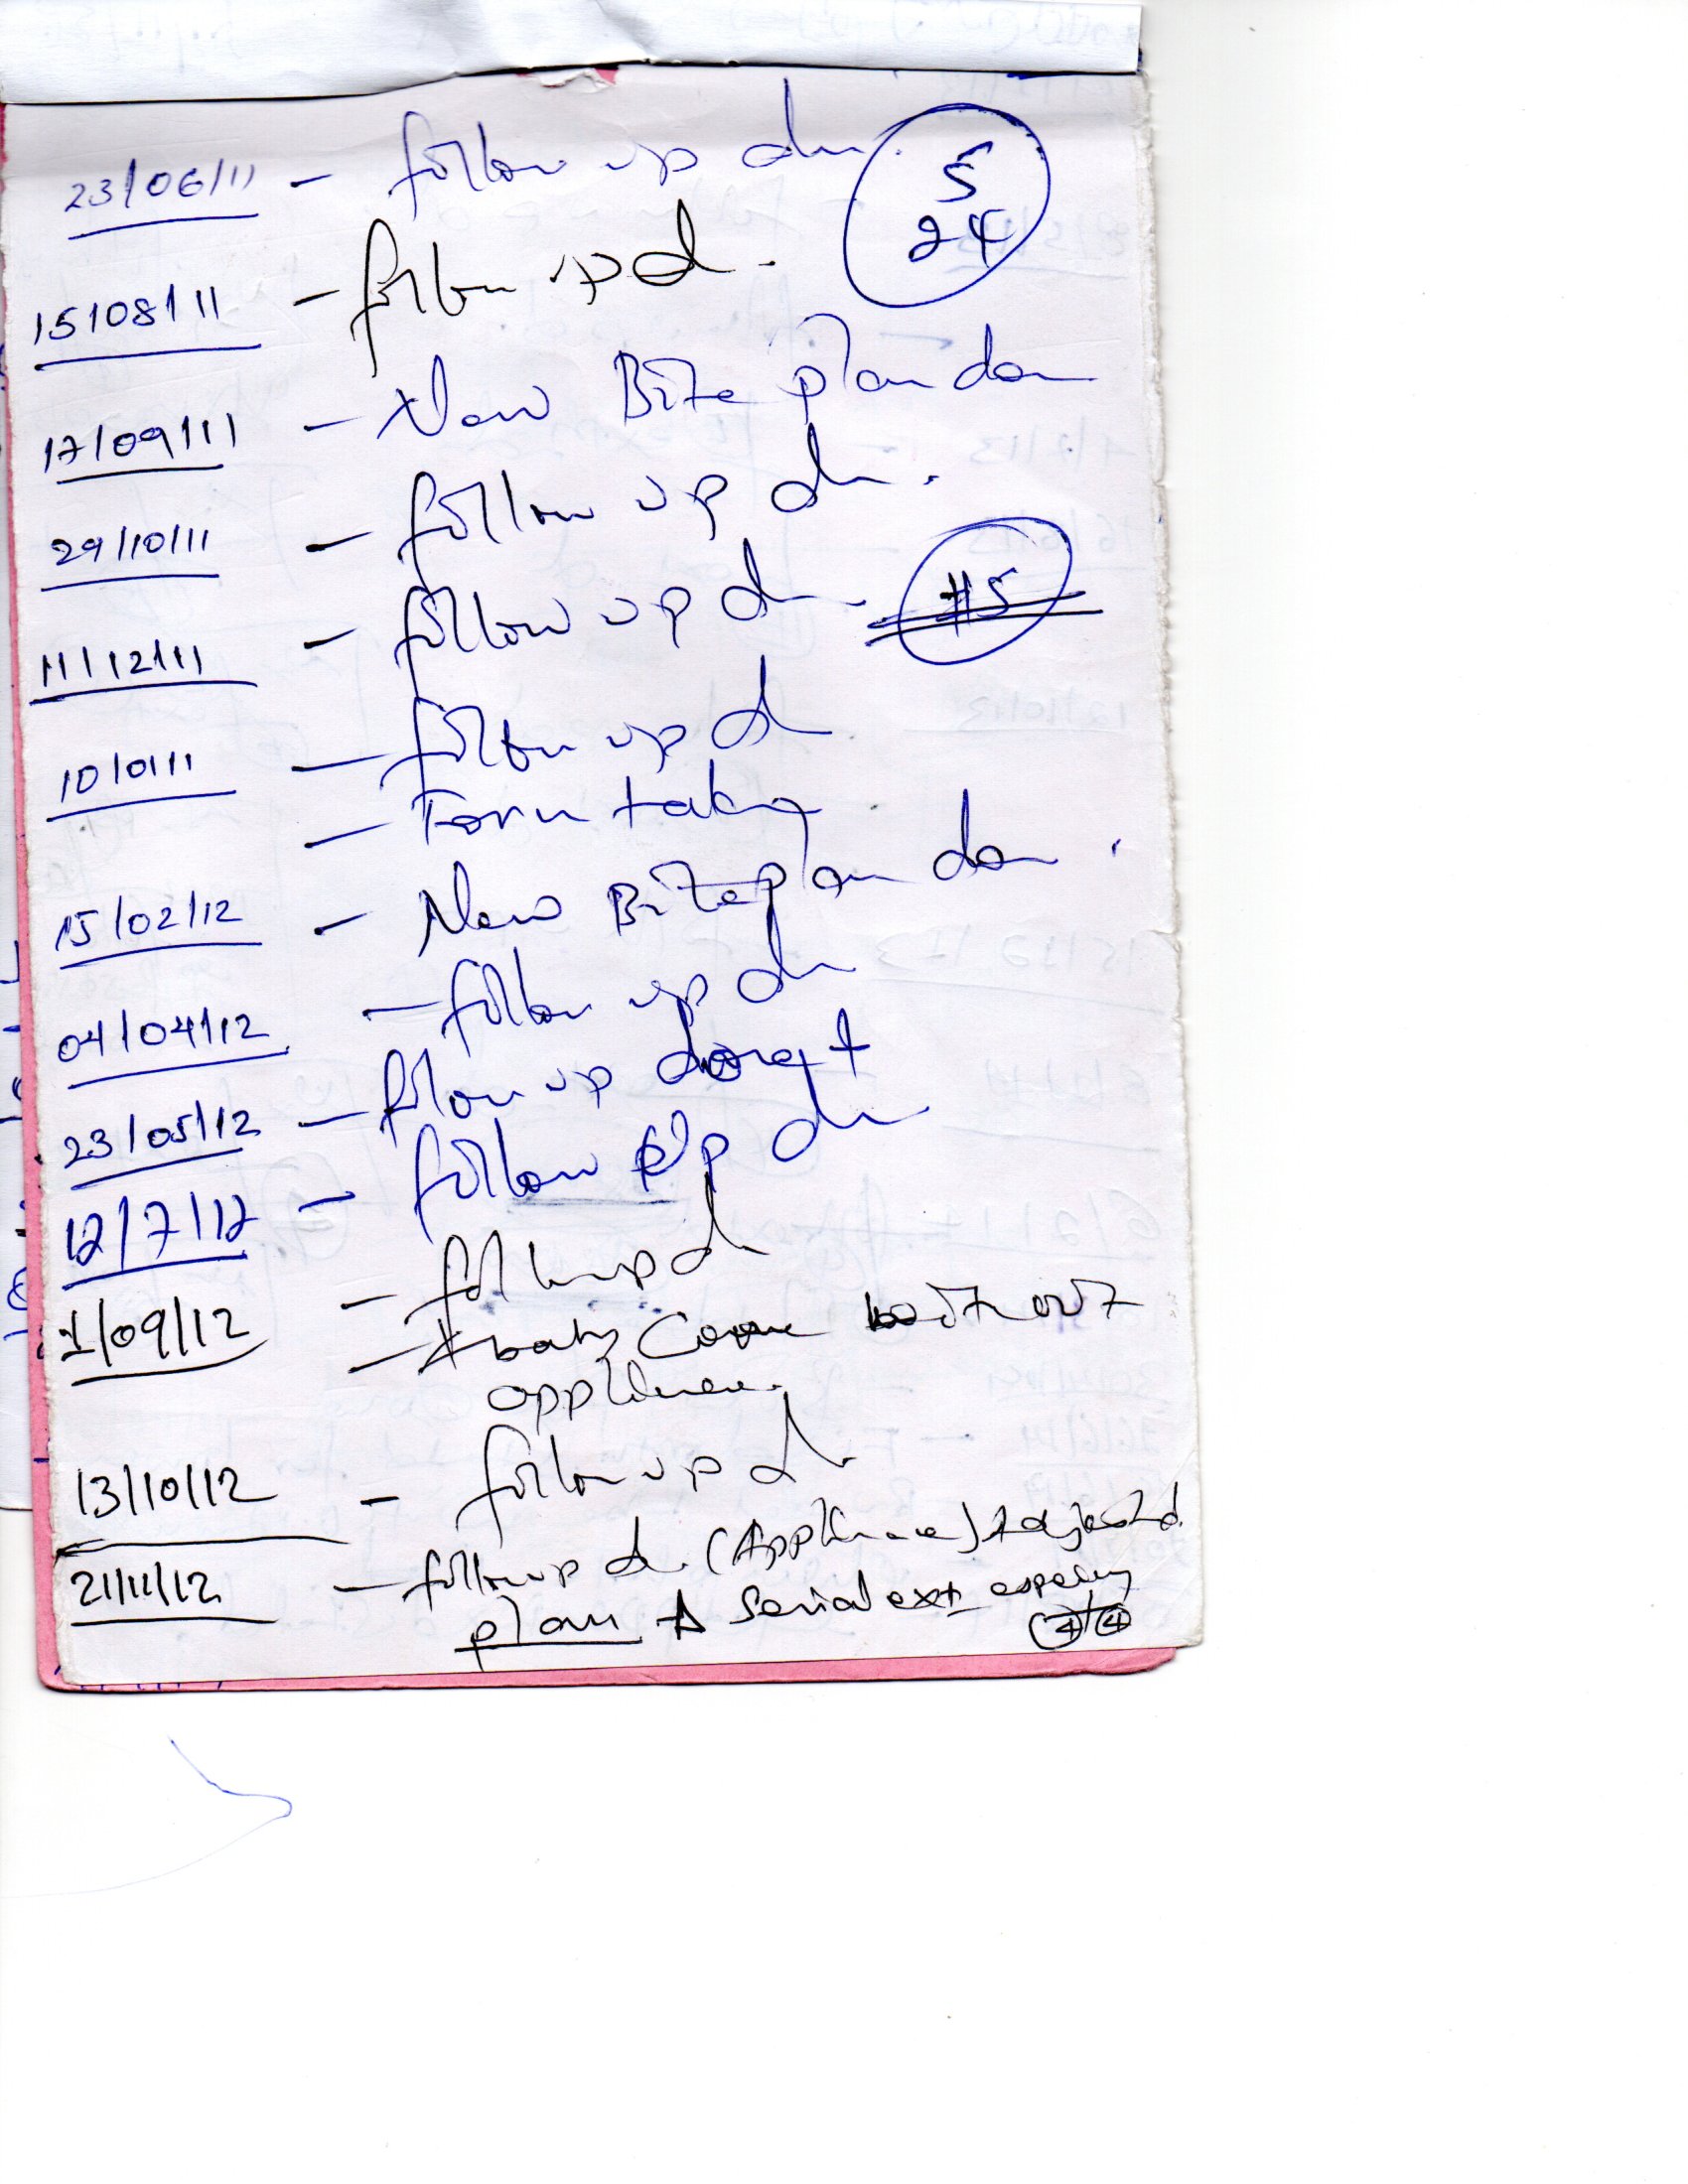 23/06/11 - follow up dn.
5
24
15/08/11 - follow up d.
17/09/11 - New Bite plan don
29/10/11 - follow up dn.
11/12/11 - follow up dn.
#5
10/01/11 - follow up d
- Form taking
15/02/12 - New Biteplan don.
04/04/12 - follow up dn
23/05/12 - follow up
12/7/12 - follow up dn
1/09/12 - follow up d
- Come without
appliance.
13/10/12 - follow up d.
21/11/12 - follow up d. (Appliance)
plan Serial ext